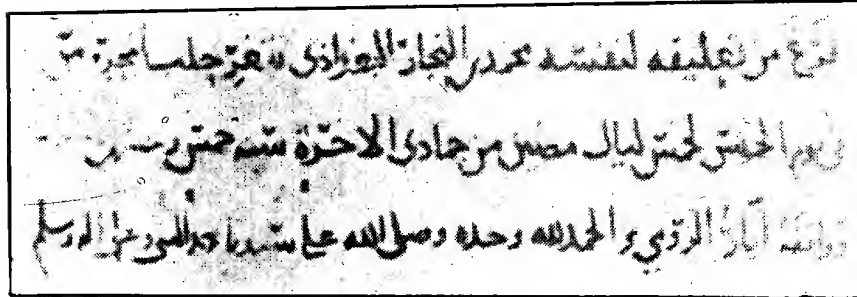 فرغ من تعليقه لنفسه محمد بن النجار البغدادي بثغر حلب
في يوم الخميس لخمس ليال مضين من جمادى الاخرة سنة خمس
ايار الرومي و الحمد لله وحده وصلى الله على سيدنا محمد النبي وعلى اله وسلم